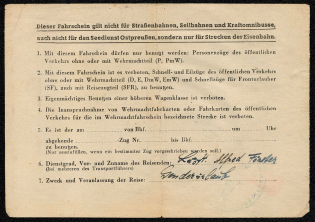 Dieser Fahrschein gilt nicht für Straßenbahnen, Seilbahnen und Kraftomnibusse,
auch nicht für den Seedienst Ostpreußen, sondern nur für Strecken der Eisenbahn.
1. Mit diesem Fahrschein dürfen nur benutzt werden: Personenzüge des öffentlichen
Verkehrs ohne oder mit Wehrmachtteil (P, PmW).
2. Mit diesem Fahrschein ist es verboten, Schnell- und Eilzüge des öffentlichen Verkehrs
ohne oder mit Wehrmachtteil (D, E, DmW, EmW) und Schnellzüge für Fronturlauber
(SF), auch mit Reisengteil (SFR), zu benutzen.
3. Eigenmächtiges Benutzen einer höheren Wagenklasse ist verboten.
4. Die Inanspruchnahme von Wehrmachtfahrkarten oder Fahrkarten des öffentlichen
Verkehrs für die im Wehrmachtfahrschein bezeichnete Strecke ist verboten.
5. Es ist der am: von Bhf. um Uhr
abgehende Zug Nr. bis Bhf.
zu benutzen.
(Nur auszufüllen, wenn ein bestimmter Zug vorgeschrieben werden soll)
6. Dienstgrad, Vor- und Zuname des Reisenden: Alfred
(bei mehreren des Transportführers)
7. Zweck und Veranlassung der Reise: Sonderurlaub